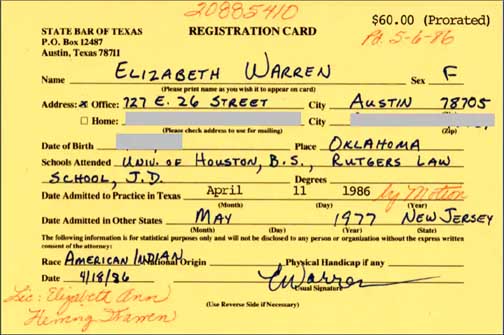 20885410
STATE BAR OF TEXAS
P.O. Box 12487
Austin, Texas 78711
REGISTRATION CARD
$60.00 (Prorated)
Pd. 5-6-86
Name ELIZABETH WARREN Sex F
(Please print name as you wish it to appear on card)
Address: Office: 727 E. 26 STREET City AUSTIN 78705
Home: City
(Please check address to use for mailing) (Zip)
Date of Birth Place OKLAHOMA
Schools Attended UNIV. OF HOUSTON, B.S., RUTGERS LAW
SCHOOL, J.D. Degrees
Date Admitted to Practice in Texas April 11 1986 by Motion
(Month) (Day) (Year)
Date Admitted in Other States MAY 1977 NEW JERSEY
(Month) (Day) (Year) (State)
The following information is for statistical purposes only and will not be disclosed to any person or organization without the express written
consent of the attorney:
Race AMERICAN INDIAN National Origin Physical Handicap if any
Date 4/18/86 EWarren
Usual Signature
(Use Reverse Side if Necessary)
Lic: Elizabeth Ann
Herring Warren